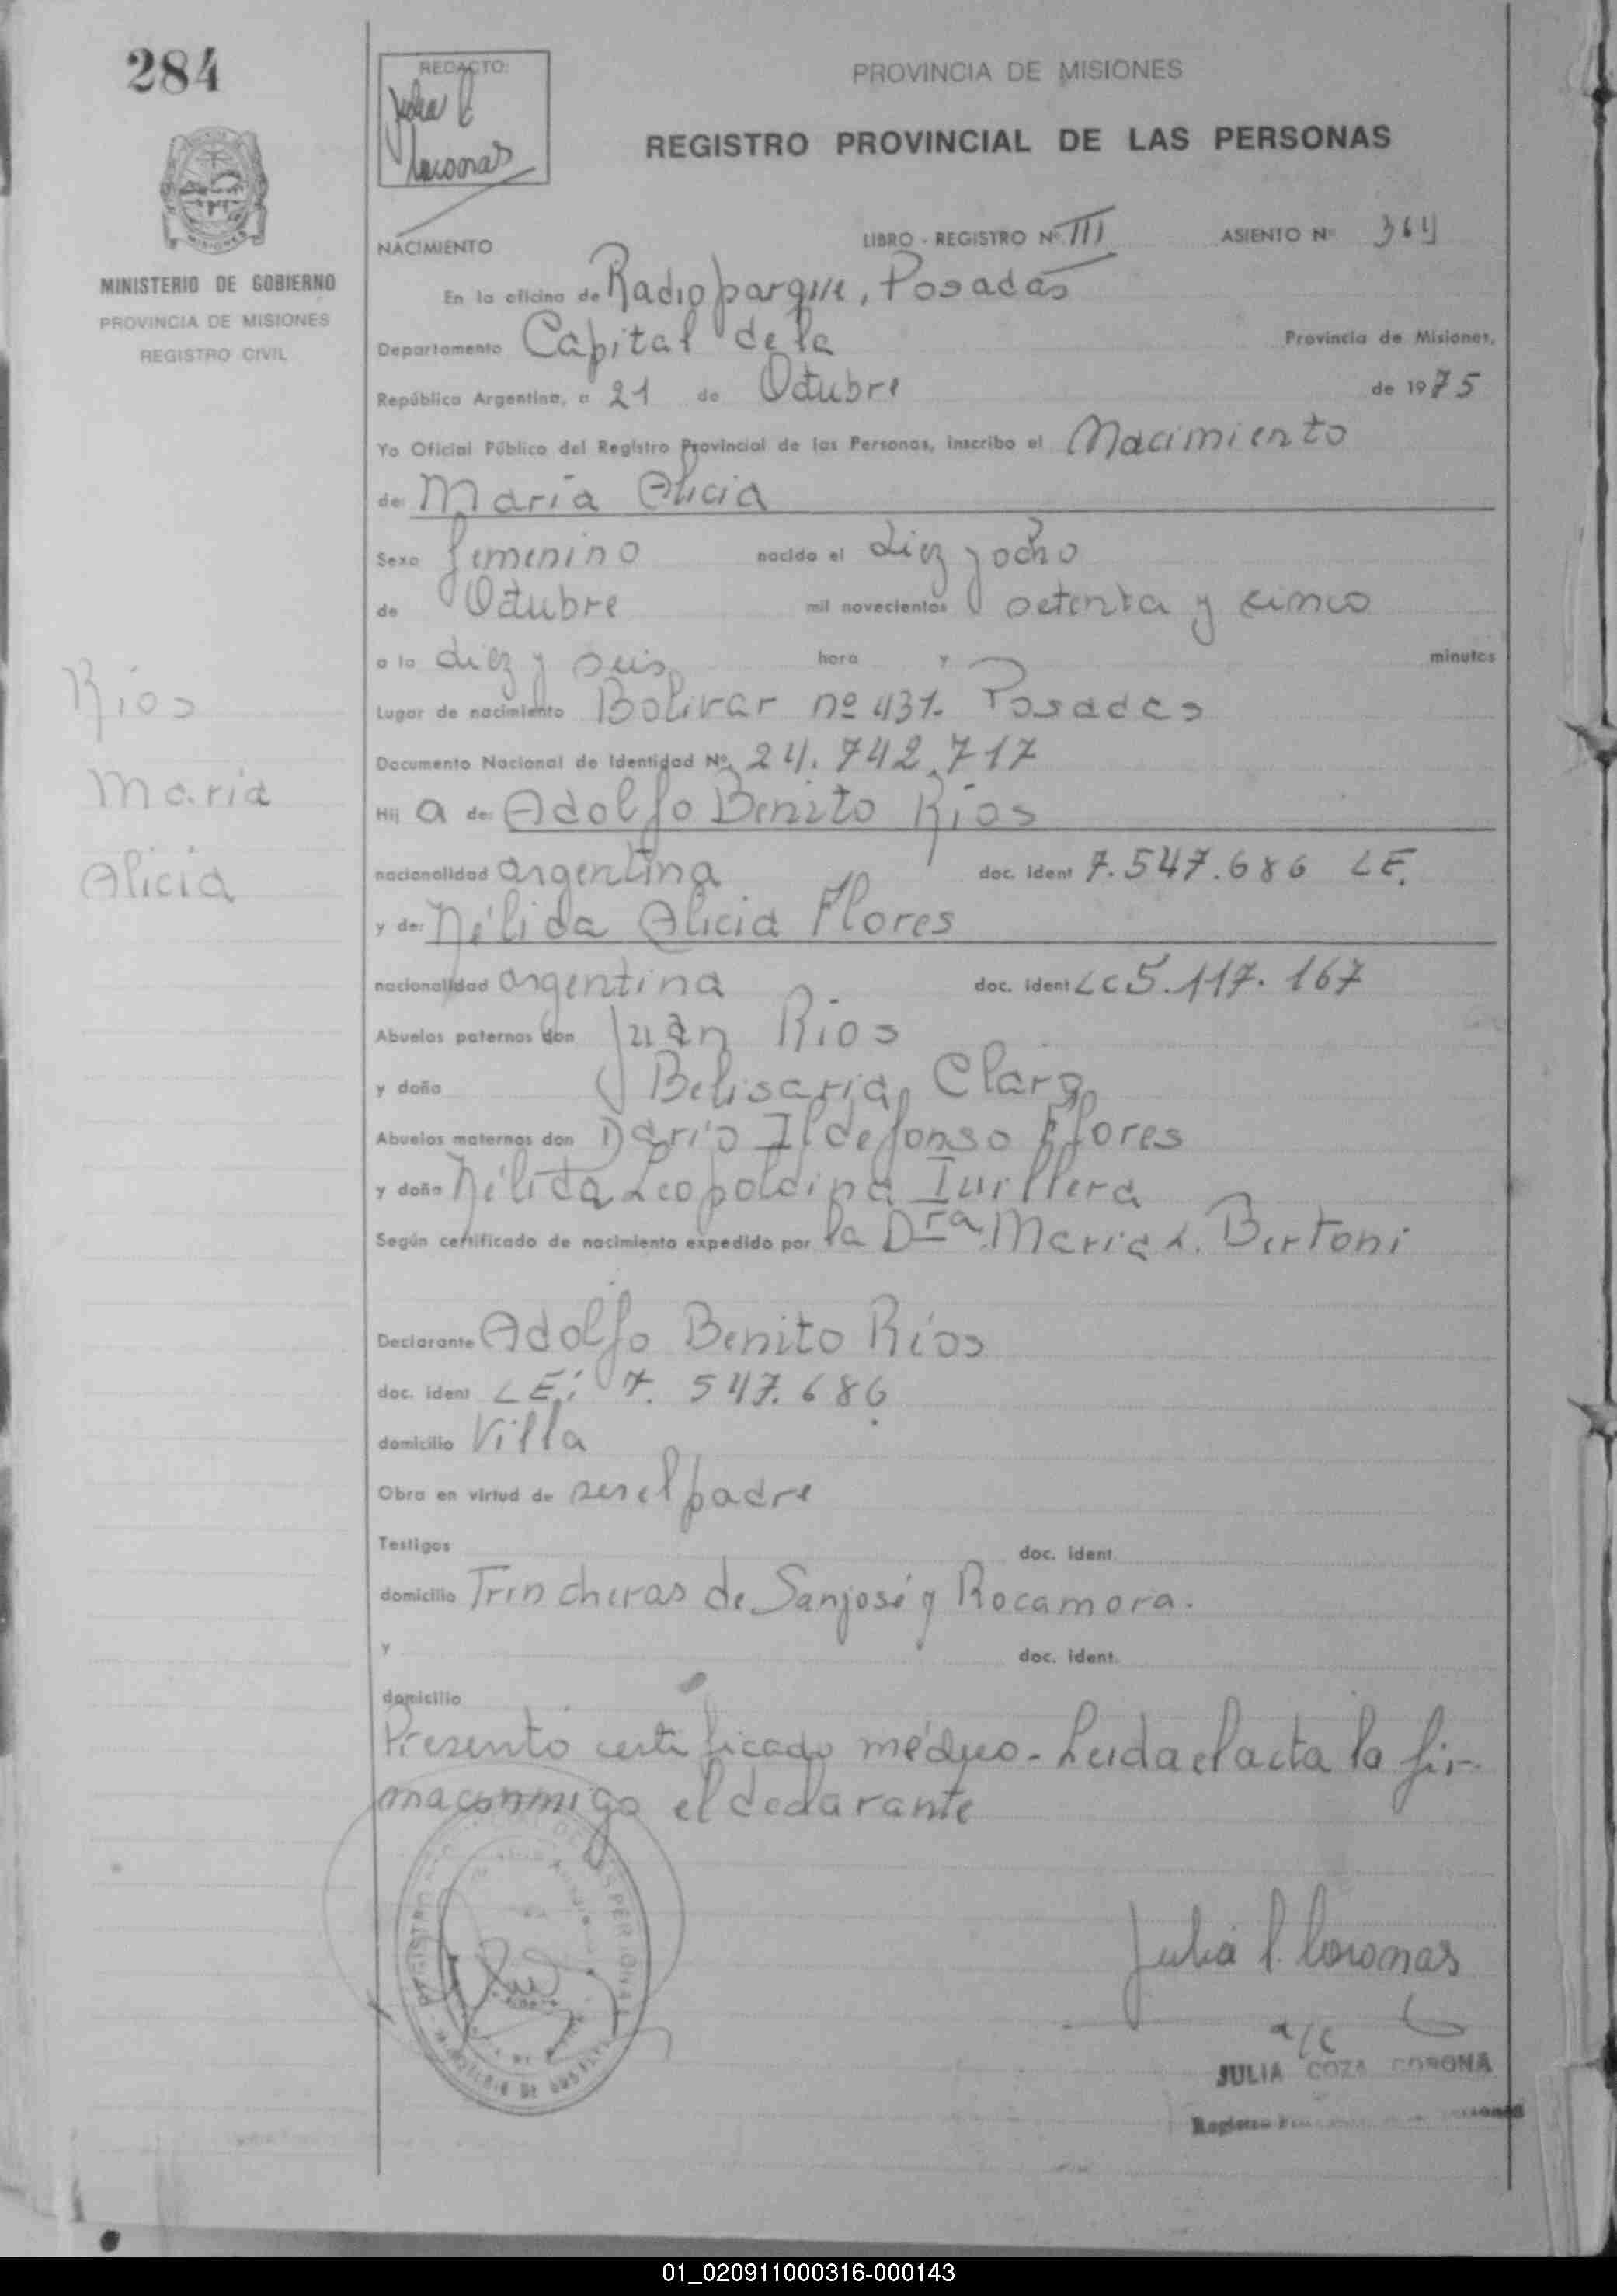 284
REDACTO:
Julia C
Coronas
PROVINCIA DE MISIONES
REGISTRO PROVINCIAL DE LAS PERSONAS
MINISTERIO DE GOBIERNO
PROVINCIA DE MISIONES
REGISTRO CIVIL
NACIMIENTO LIBRO - REGISTRO Nº III ASIENTO Nº 364
En la oficina de Radioparque, Posadas
Departamento Capital de la Provincia de Misiones,
República Argentina, a 21 de Octubre de 1975
Yo Oficial Público del Registro Provincial de las Personas, inscribo el Nacimiento
de: María Alicia
Sexo femenino nacido el diez y ocho
de Octubre mil novecientos setenta y cinco
a la diez y seis hora y minutos
Lugar de nacimiento Bolivar nº 431. Posadas
Documento Nacional de Identidad Nº 24.742.717
Hij a de: Adolfo Benito Ríos
nacionalidad argentina doc. ident 7.547.686 LE.
y de: Nélida Alicia Flores
nacionalidad argentina doc. ident LC 5.117.167
Abuelos paternos don Juan Rios
y doña Belisaria Clara
Abuelos maternos don Darío Ildefonso Flores
y doña Nélida Leopoldina
Según certificado de nacimiento expedido por la Dra. Maria L. Bertoni
Declarante Adolfo Benito Ríos
doc. ident LE: 7.547.686
domicilio Villa
Obra en virtud de ser el padre
Testigos doc. ident.
domicilio Trincheras de Sanjosé y Rocamora.
y doc. ident.
domicilio
Presentó certificado médico - Leida el acta la fir-
ma conmigo el declarante
Ríos
Maria
Alicia
Julia C. Coronas
a/c
JULIA COZA CORONA
Registro
01_020911000316-000143